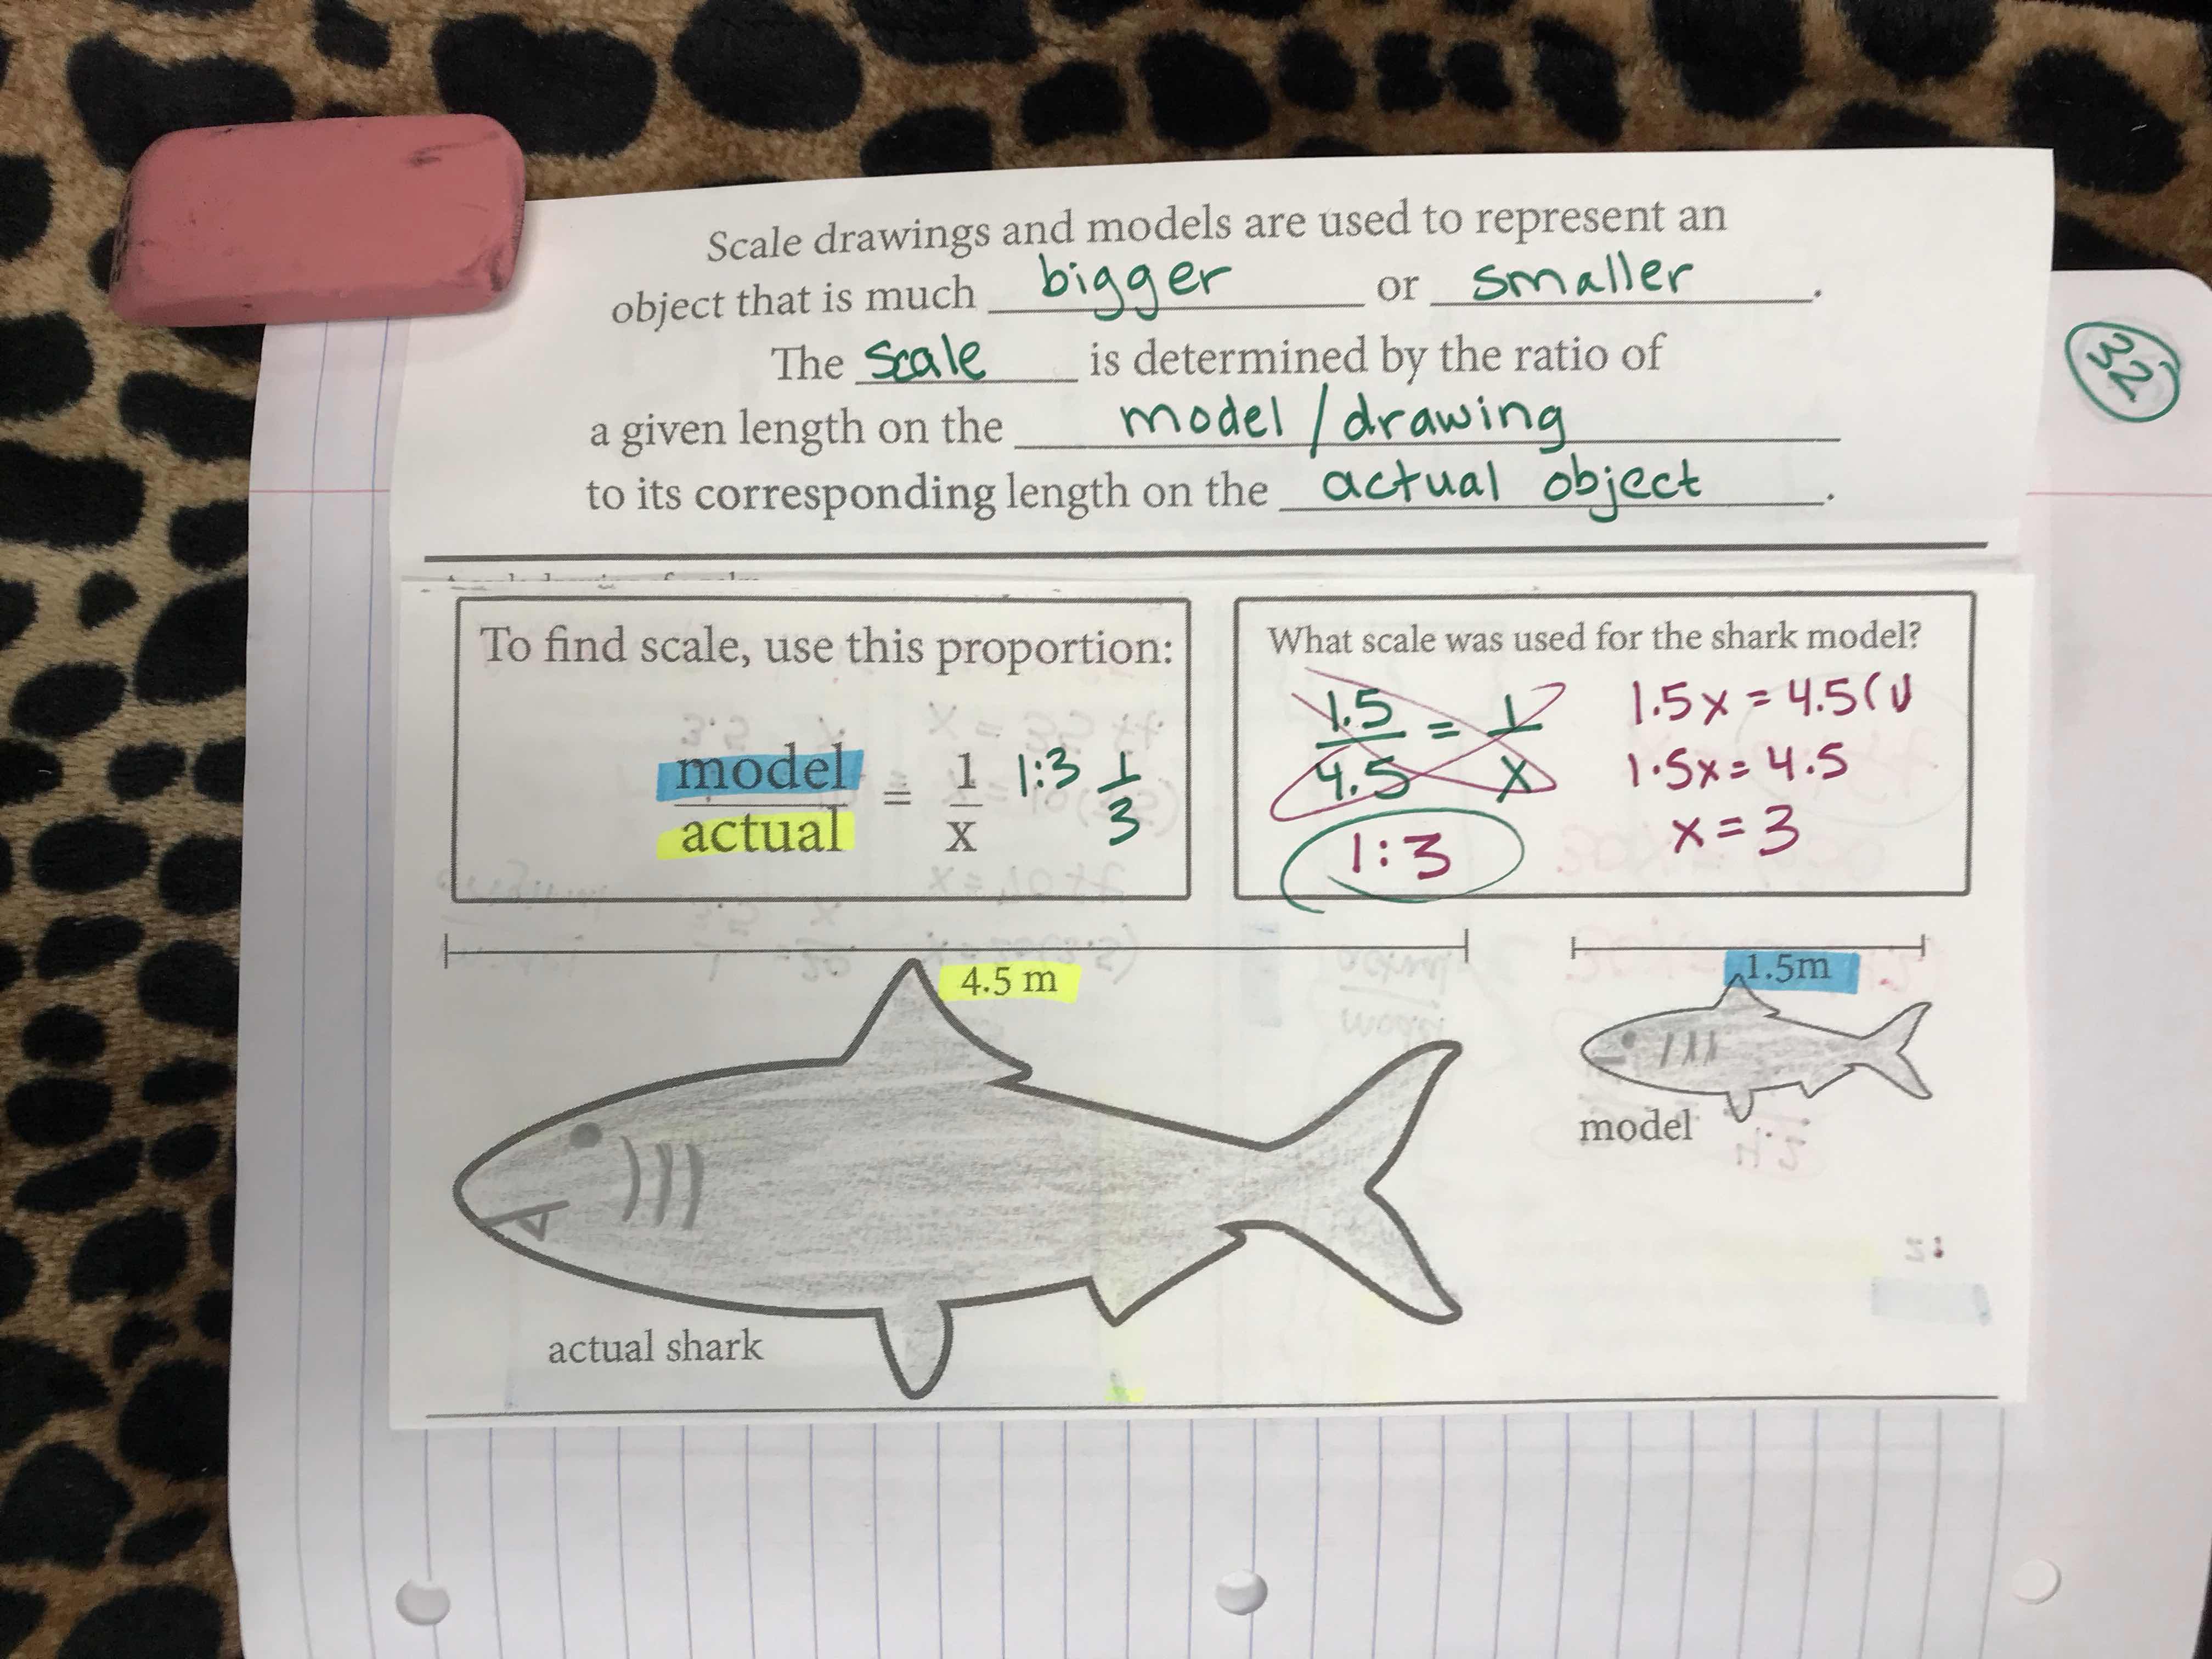 Scale drawings and models are used to represent an
object that is much bigger or smaller.
The scale is determined by the ratio of
a given length on the model/drawing
to its corresponding length on the actual object.
32
To find scale, use this proportion:
model/actual = 1/x 1:3 1/3
What scale was used for the shark model?
1.5/4.5 = 1/x
1:3
1.5x = 4.5(1)
1.5x = 4.5
x = 3
4.5 m
1.5m
model
actual shark